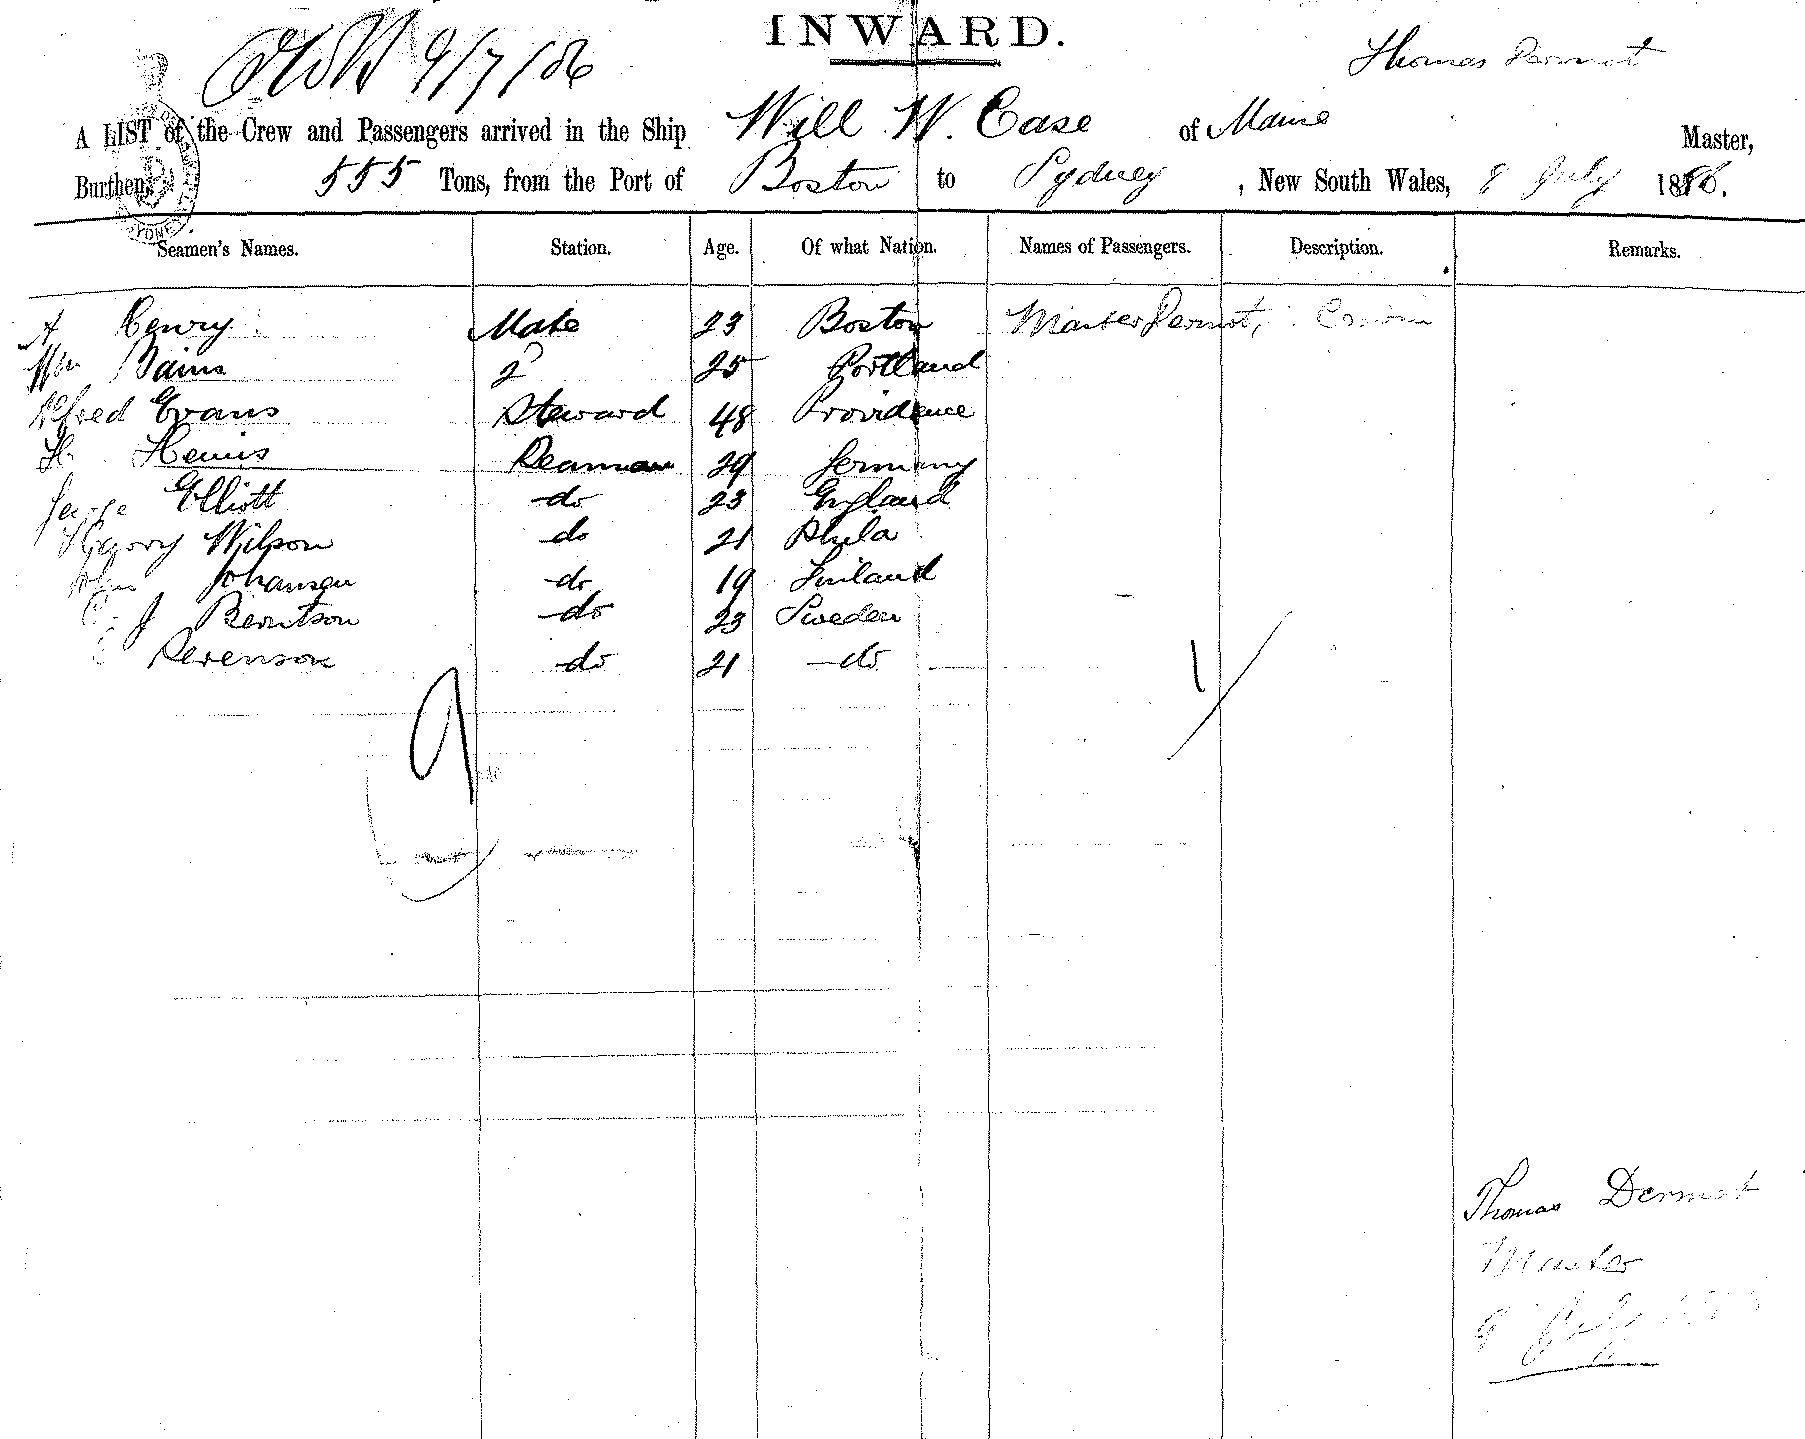 INWARD.
9/7/86
Thomas Dermot
A LIST of the Crew and Passengers arrived in the Ship Will W. Case of Maine Master,
Burthen, 555 Tons, from the Port of Boston to Sydney, New South Wales, 8 July 1886.
Seamen's Names. Station. Age. Of what Nation. Names of Passengers. Description. Remarks.
A Henry Mate 23 Boston Master Dermot,
Wm Bains 2 25 Portland
Alfred Evans Steward 48 Providence
H. Seaman 29 Germany
George Elliott do 23 England
Harry Wilson do 21 Phila
John Johansen do 19 Finland
C. J Berntson do 23 Sweden
Serenson do 21 do
1/
9
Thomas Dermot
Master
9 July